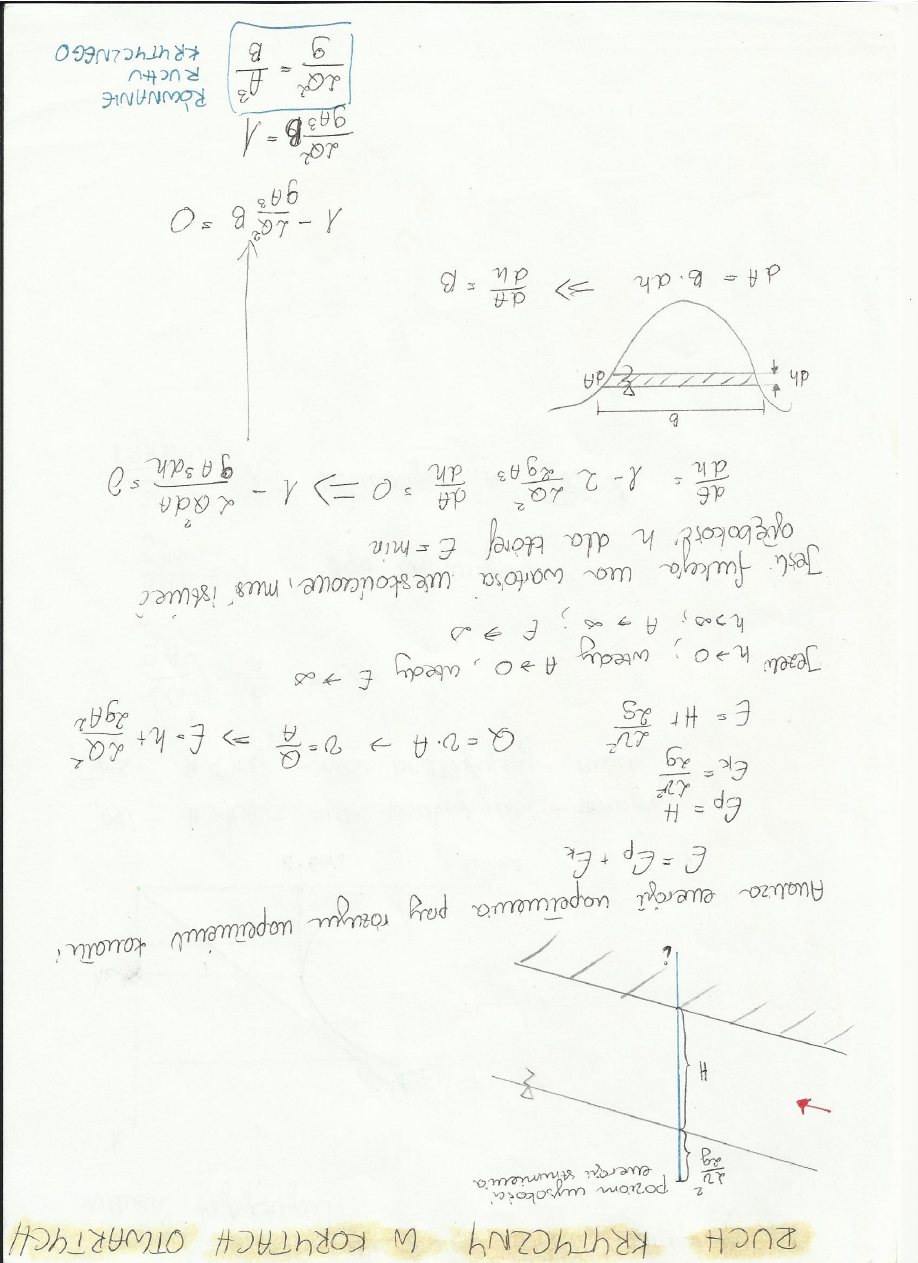 RUCH KRYTYCZNY W KORYTACH OTWARTYCH
poziom wysokości
energii strumienia
αv²/2g
H
i
Analiza energii napełnienia przy różnym napełnieniu kanału.
E = Ep + Ek
Ep = H
Ek = αv²/2g
E = H + αv²/2g
Q = v·A → v = Q/A ⇒ E = h + αQ²/2gA²
Jeżeli h→0; wtedy A→0, wtedy E→∞
h→∞; A→∞; E→∞
Jeśli funkcja ma wartości nieskończone, musi istnieć
głębokość h dla której E = min
dE/dh = 1 - 2 αQ²/2gA³ dA/dh = 0 ⇒ 1 - αQ²dA/gA³dh = 0
B
dh
dA
dA = B·dh ⇒ dA/dh = B
1 - αQ²/gA³ B = 0
αQ²/gA³ B = 1
αQ²/g = A³/B
RÓWNANIE
RUCHU
KRYTYCZNEGO